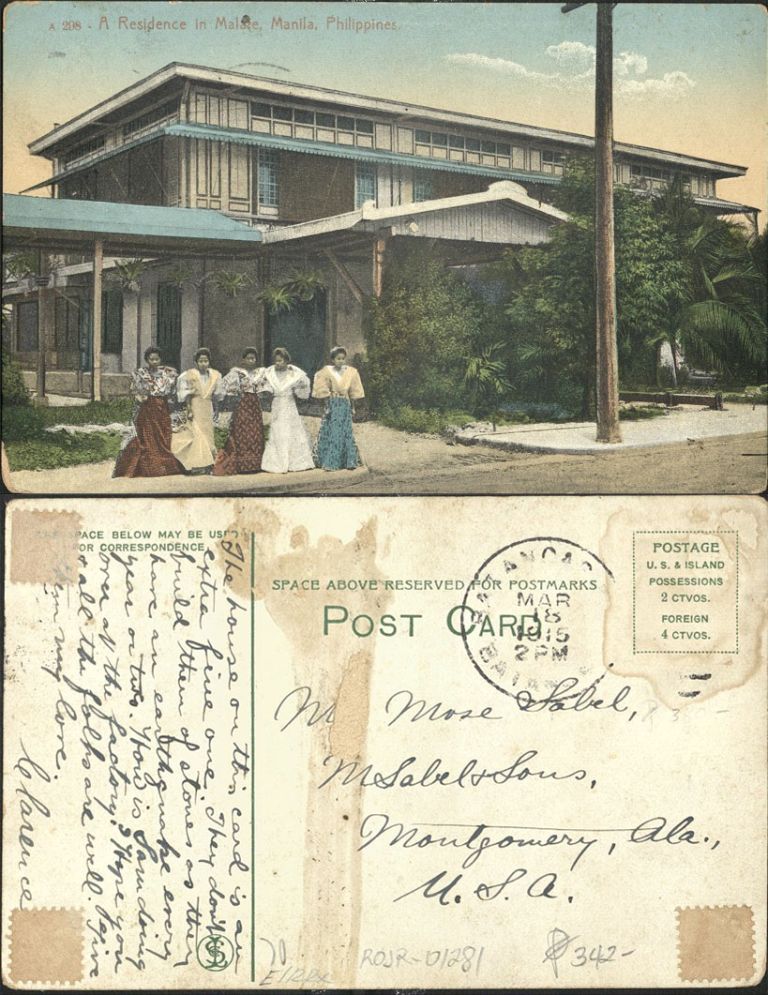 A 298 - A Residence in Malate, Manila, Philippines.
SPACE BELOW MAY BE USED
FOR CORRESPONDENCE
The house on this card is an
extra fine one. They don't
build them of stones as they
have an earthquake every
year or two. How is Sam doing
over at the factory? Hope you
all the folks are well. Give
them my love.
Clarence
SPACE ABOVE RESERVED FOR POSTMARKS
POST CARD
MAR
18
1915
2 PM
BATAAN
POSTAGE
U. S. & ISLAND
POSSESSIONS
2 CTVOS.
FOREIGN
4 CTVOS.
M Mose Sabel,
M Sabel & Sons,
Montgomery, Ala.,
U. S. A.
ROJR-01281
₱342-